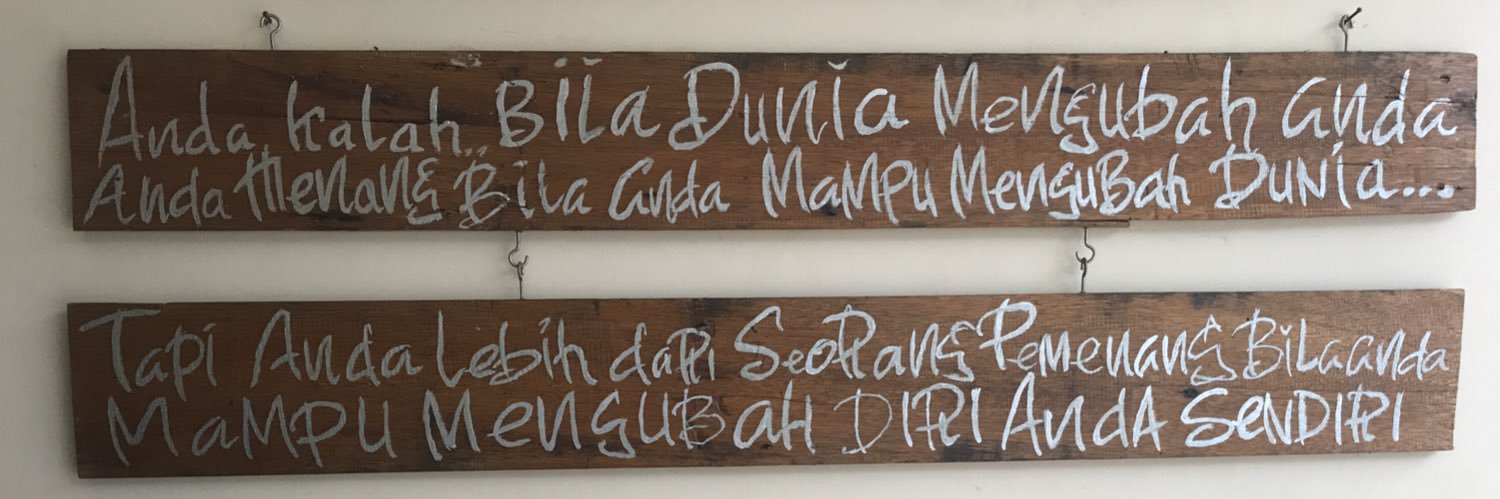 Anda kalah.. Bila Dunia Mengubah anda
Anda Menang Bila anda Mampu Mengubah Dunia...
Tapi Anda Lebih dari Seorang Pemenang Bila anda
MaMPU MengUBaH DIRI AndA SENDIRI